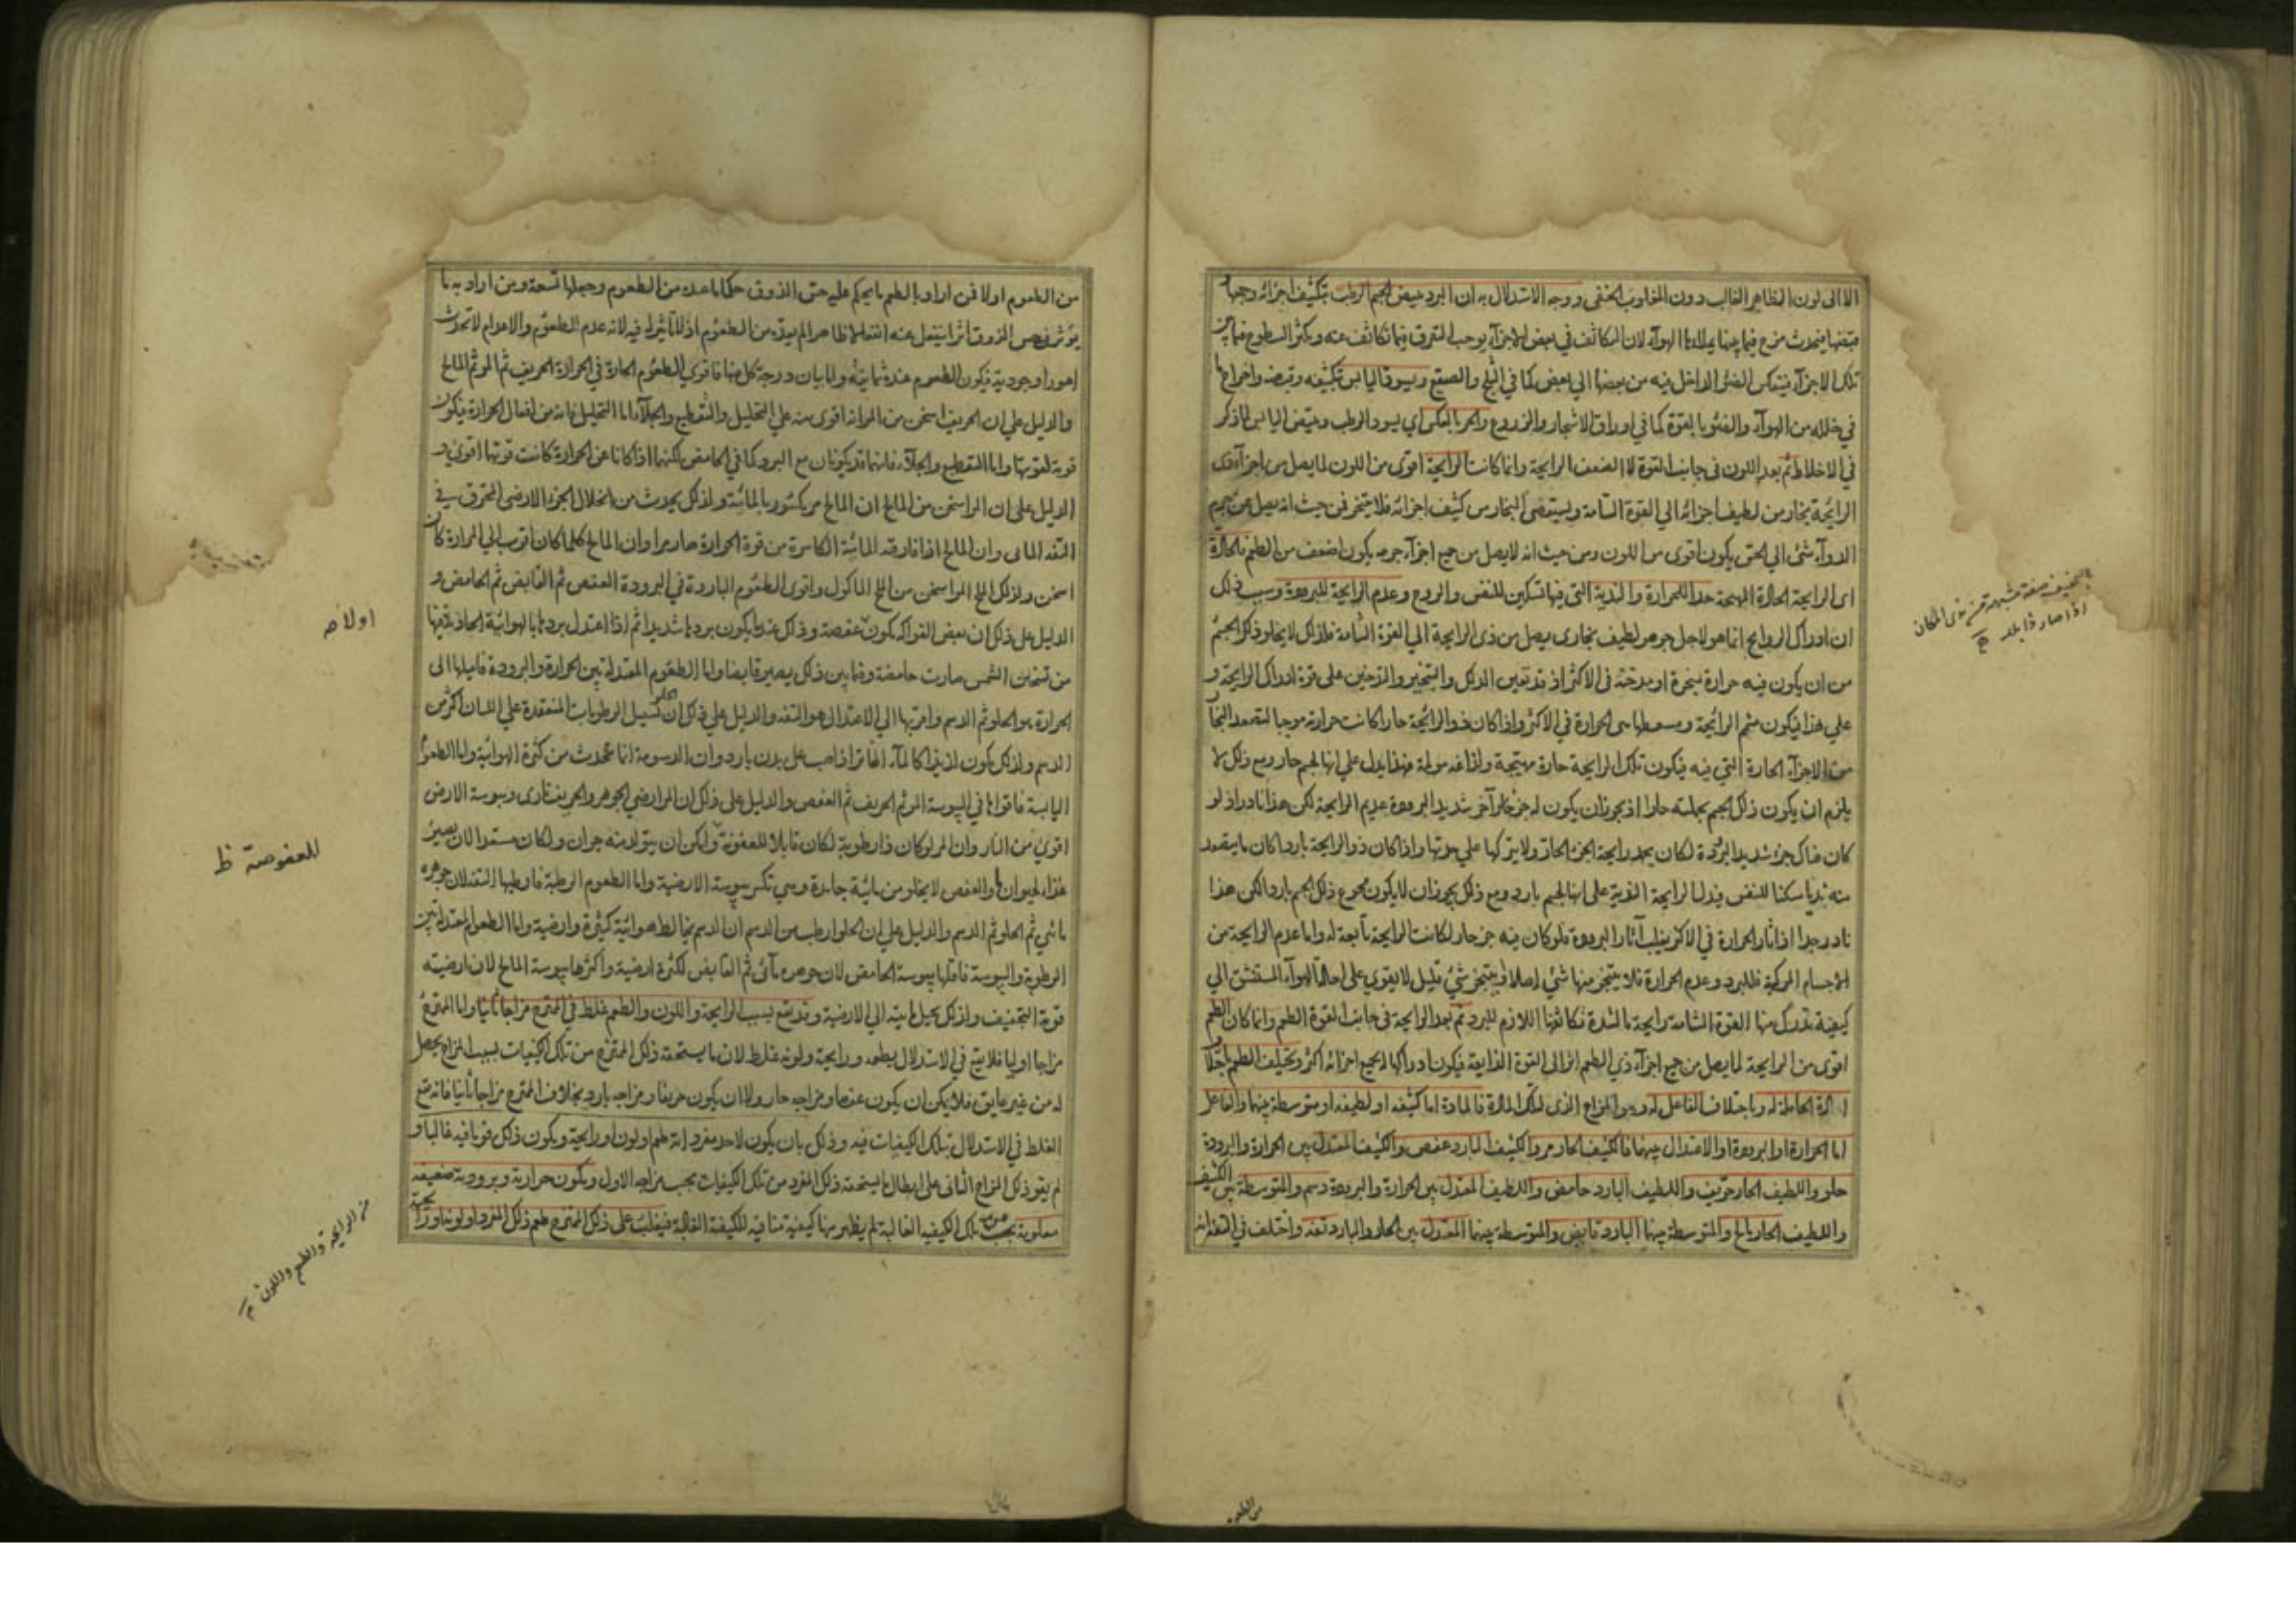 الا الى لون الظاهر الغالب دون المغلوب الخفى ووجه الاستدلال به ان البرد يبيض الجسم الرطب بتكثيف اجزائه وجمعها
فيحدث فرج فيما بينها يملاءها الهوآء لان التكاثف في بعض الاجزآء يوجب التفرق فيما تكاثف عنه ويكثر السطوح فيما بين
تلك الاجزآء فينعكس الضوء الداخل فيه من بعضها الي بعض كما في الثلج والصقيع ويسود اليابس بتكثيفه وقبضه واخراج ما
في خلاله من الهوآء والضوء بالقوة كما في اوراق الاشجار والزروع والحر بالعكس اي يسود الرطب ويبيض اليابس لما ذكر
في الاخلاط ثم بعد اللون في جانب القوة لا الضعف الرايحة وانما كانت الرايحة اقوى من اللون لما يصل من اجزآء ذى
الرائحة بخار من لطيف اجزائه الي القوة الشامة ويستقصى البخار من كثيف اجزائه فلا يتبخر فمن حيث انه يصل من جرم
الدوآء شئ الي الحس يكون اقوى من اللون ومن حيث انه لا يصل من جميع اجزآء جرمه يكون اضعف من الطعم فالحادة
اى الرايحة الحادة المهيجة جدا للحرارة والندية التي فيها تسكين للنفس والروح وعدم الرايحة للبرودة وسبب ذلك
ان ادراك الروايح انما هو لاجل جوهر لطيف بخارى يصل من ذى الرايحة الي القوة الشامة فلذلك لا يخلو ذلك الجسم
من ان يكون فيه حرارة مبخرة او مدخنة في الاكثر اذ قد تعين الدلك والتبخير والتدخين على قوة ادراك الرايحة و
علي هذا فيكون متمم الرائحة ومسطعها هى الحرارة في الاكثر واذا كان ذو الرائحة حارا كانت حرارته موجبا لتصعد البخار
من الاجزآء الحارة التي فيه فيكون تلك الرايحة حارة مهيجة ولذاعة مولمة فهذا يدل علي انها لجسم حار ومع ذلك لا
يلزم ان يكون ذلك الجسم بجملته حارا اذ يجوز ان يكون له جزء آخر شديد البرودة عديم الرايحة لكن هذا نادر اذ لو
كان هناك جزء شديد البرودة لكان يخمد رايحة الجزء الحار ولا يتركها علي حدتها واذا كان ذو الرايحة باردا كان ما يتصعد
منه نديا مسكنا للنفس فيدل الرايحة الندية على انها لجسم بارد ومع ذلك يجوز ان لا يكون مجموع ذلك الجسم باردا لكن هذا
نادر جدا اذ آثار الحرارة في الاكثر يغلب آثار البرودة فلو كان فيه جزء حار لكانت الرايحة تابعة له واما عدم الرايحة من
الاجسام المركبة فللبرد وعدم الحرارة فلا يتبخر منها شئ اصلا او يتبخر شئ قليل لا يقوي على احالة الهوآء المستنشق الي
كيفية تدرك منها القوة الشامة رايحة ما لشدة تكاثفها اللازم للبرد ثم بعد الرايحة في جانب القوة الطعم وانما كان الطعم
اقوى من الرايحة لما يصل من جميع اجزآء ذي الطعم اثر الى القوة الذايقة فيكون ادراكها لجميع اجزائه اكثر ويختلف الطعم باختلاف
المادة الحاملة له وباختلاف الفاعل له وهو المزاج الذى لتلك المادة فالمادة اما كثيفة او لطيفة او متوسطة بينهما والفاعل
اما الحرارة او البرودة او الاعتدال بينهما فالكثيف الحار مر والكثيف البارد عفص والكثيف المعتدل بين الحرارة والبرودة
حلو واللطيف الحار حريف واللطيف البارد حامض واللطيف المعتدل بين الحرارة والبرودة دسم والمتوسطة بين الكثيف
واللطيف الحار مالح والمتوسطة بينهما البارد قابض والمتوسطة بينهما المعتدل بين الحار والبارد تفه واختلف في التفه انه
اذا صار ذا بلد
من الطعوم
من الطعوم اولا فمن اراد بالطعم ما يحكم عليه حس الذوق حكما ما عده من الطعوم وجعلها تسعة ومن اراد به ما
يؤثر في حس الذوق اثرا ينفعل عنه انفعالا ظاهرا لم يعده من الطعوم اذ لا تأثير له فيه لانه عدم الطعوم والاعدام لا تحدث
امورا وجودية فيكون الطعوم عنده ثمانية واما بيان درجة كل منها فاقوى الطعوم الحارة في الحرارة الحريف ثم المر ثم المالح
والدليل علي ان الحريف اسخن من المر انه اقوى منه علي التحليل والتقطيع والجلآء اما التحليل فانه من افعال الحرارة فيكون
قوته لقوتها واما التقطيع والجلآء فانهما قد يكونان مع البرد كما في الحامض لكنهما اذا كانا عن الحرارة كانت قوتها اقوى و
الدليل على ان المر اسخن من المالح ان المالح مر مكسور بالمائية ولذلك يحدث من انحلال الجزء الارضى المحترق في
التفه المائى وان المالح اذا فارقته المائية الكاسرة من قوة الحرارة صار مرا وان المالح كلما كان اقرب الي المرارة كان
اسخن ولذلك الملح المر اسخن من الملح الماكول واقوى الطعوم الباردة في البرودة العفص ثم القابض ثم الحامض و
الدليل على ذلك ان بعض الفواكه يكون عفصة وذلك عند ما يكون بردها شديدا ثم اذا اعتدل بردها بالهوائية الحادثة فيها
من تسخين الشمس صارت حامضة وفيما بين ذلك يصير قابضا واما الطعوم المعتدلة بين الحرارة والبرودة فاميلها الى
الحرارة هو الحلو ثم الدسم واقربها الي الاعتدال هو التفه والدليل علي ذلك ان الحلو يسيل الرطوبات المنعقدة علي اللسان اكثر من
الدسم ولذلك يكون لذيذا كالمآء الفاتر اذا صب على بدن بارد وان الدسومة انما تحدث من كثرة الهوائية واما الطعوم
اليابسة فاقواها في اليبوسة المر ثم الحريف ثم العفص والدليل على ذلك ان المر ارضي الجوهر والحريف نارى ويبوسة الارض
اقوى من النار وان المر لو كان ذا رطوبة لكان قابلا للعفونة ولامكن ان يتولد منه حيوان ولكان مستعدا لان يصير
غذاء لحيوان ما والعفص لا يخلو من مائية جامدة وهي تكسر يبوسة الارضية واما الطعوم الرطبة فارطبها التفه لان جوهره
مائي ثم الحلو ثم الدسم والدليل علي ان الحلو ارطب من الدسم ان الدسم يخالطه هوائية كثيرة وارضية واما الطعوم المعتدلة بين
الرطوبة واليبوسة فاقلها يبوسة الحامض لان جوهره مآئى ثم القابض لكثرة ارضية واكثرها يبوسة المالح لان ارضيته
قوية التجفيف ولذلك يحيل مائيته الي الارضية وقد يقع بسبب الرايحة واللون والطعم غلط في الممتزج مزاجا ثانيا واما الممتزج
مزاجا اوليا فلا يقع في الاستدلال بطعمه ورايحته ولونه غلط لان ما يستحقه ذلك الممتزج من تلك الكيفيات بسبب المزاج يحصل
له من غير عايق فلا يمكن ان يكون عفصا ومزاجه حار ولا ان يكون حريفا ومزاجه بارد بخلاف الممتزج مزاجا ثانيا فانه يقع
الغلط في الاستدلال بتلك الكيفيات فيه وذلك بان يكون لاحد مفرداته طعم او لون او رايحة ويكون ذلك قويا فيه غالبا و
لم يقو ذلك المزاج الثانى على ابطال ما يستحقه ذلك المفرد من تلك الكيفيات بحسب مزاجه الاول ويكون حرارته وبرودته ضعيفة
مغلوبة بحيث من تلك الكيفيه الغالبة لم يظهر منها كيفية منافية للكيفية الغالبة فيغلب على ذلك الممتزج طعم ذلك المفرد او لونه او رائحته
اولا صه
للعفوصة ظ
من الرايحة والطعم واللون